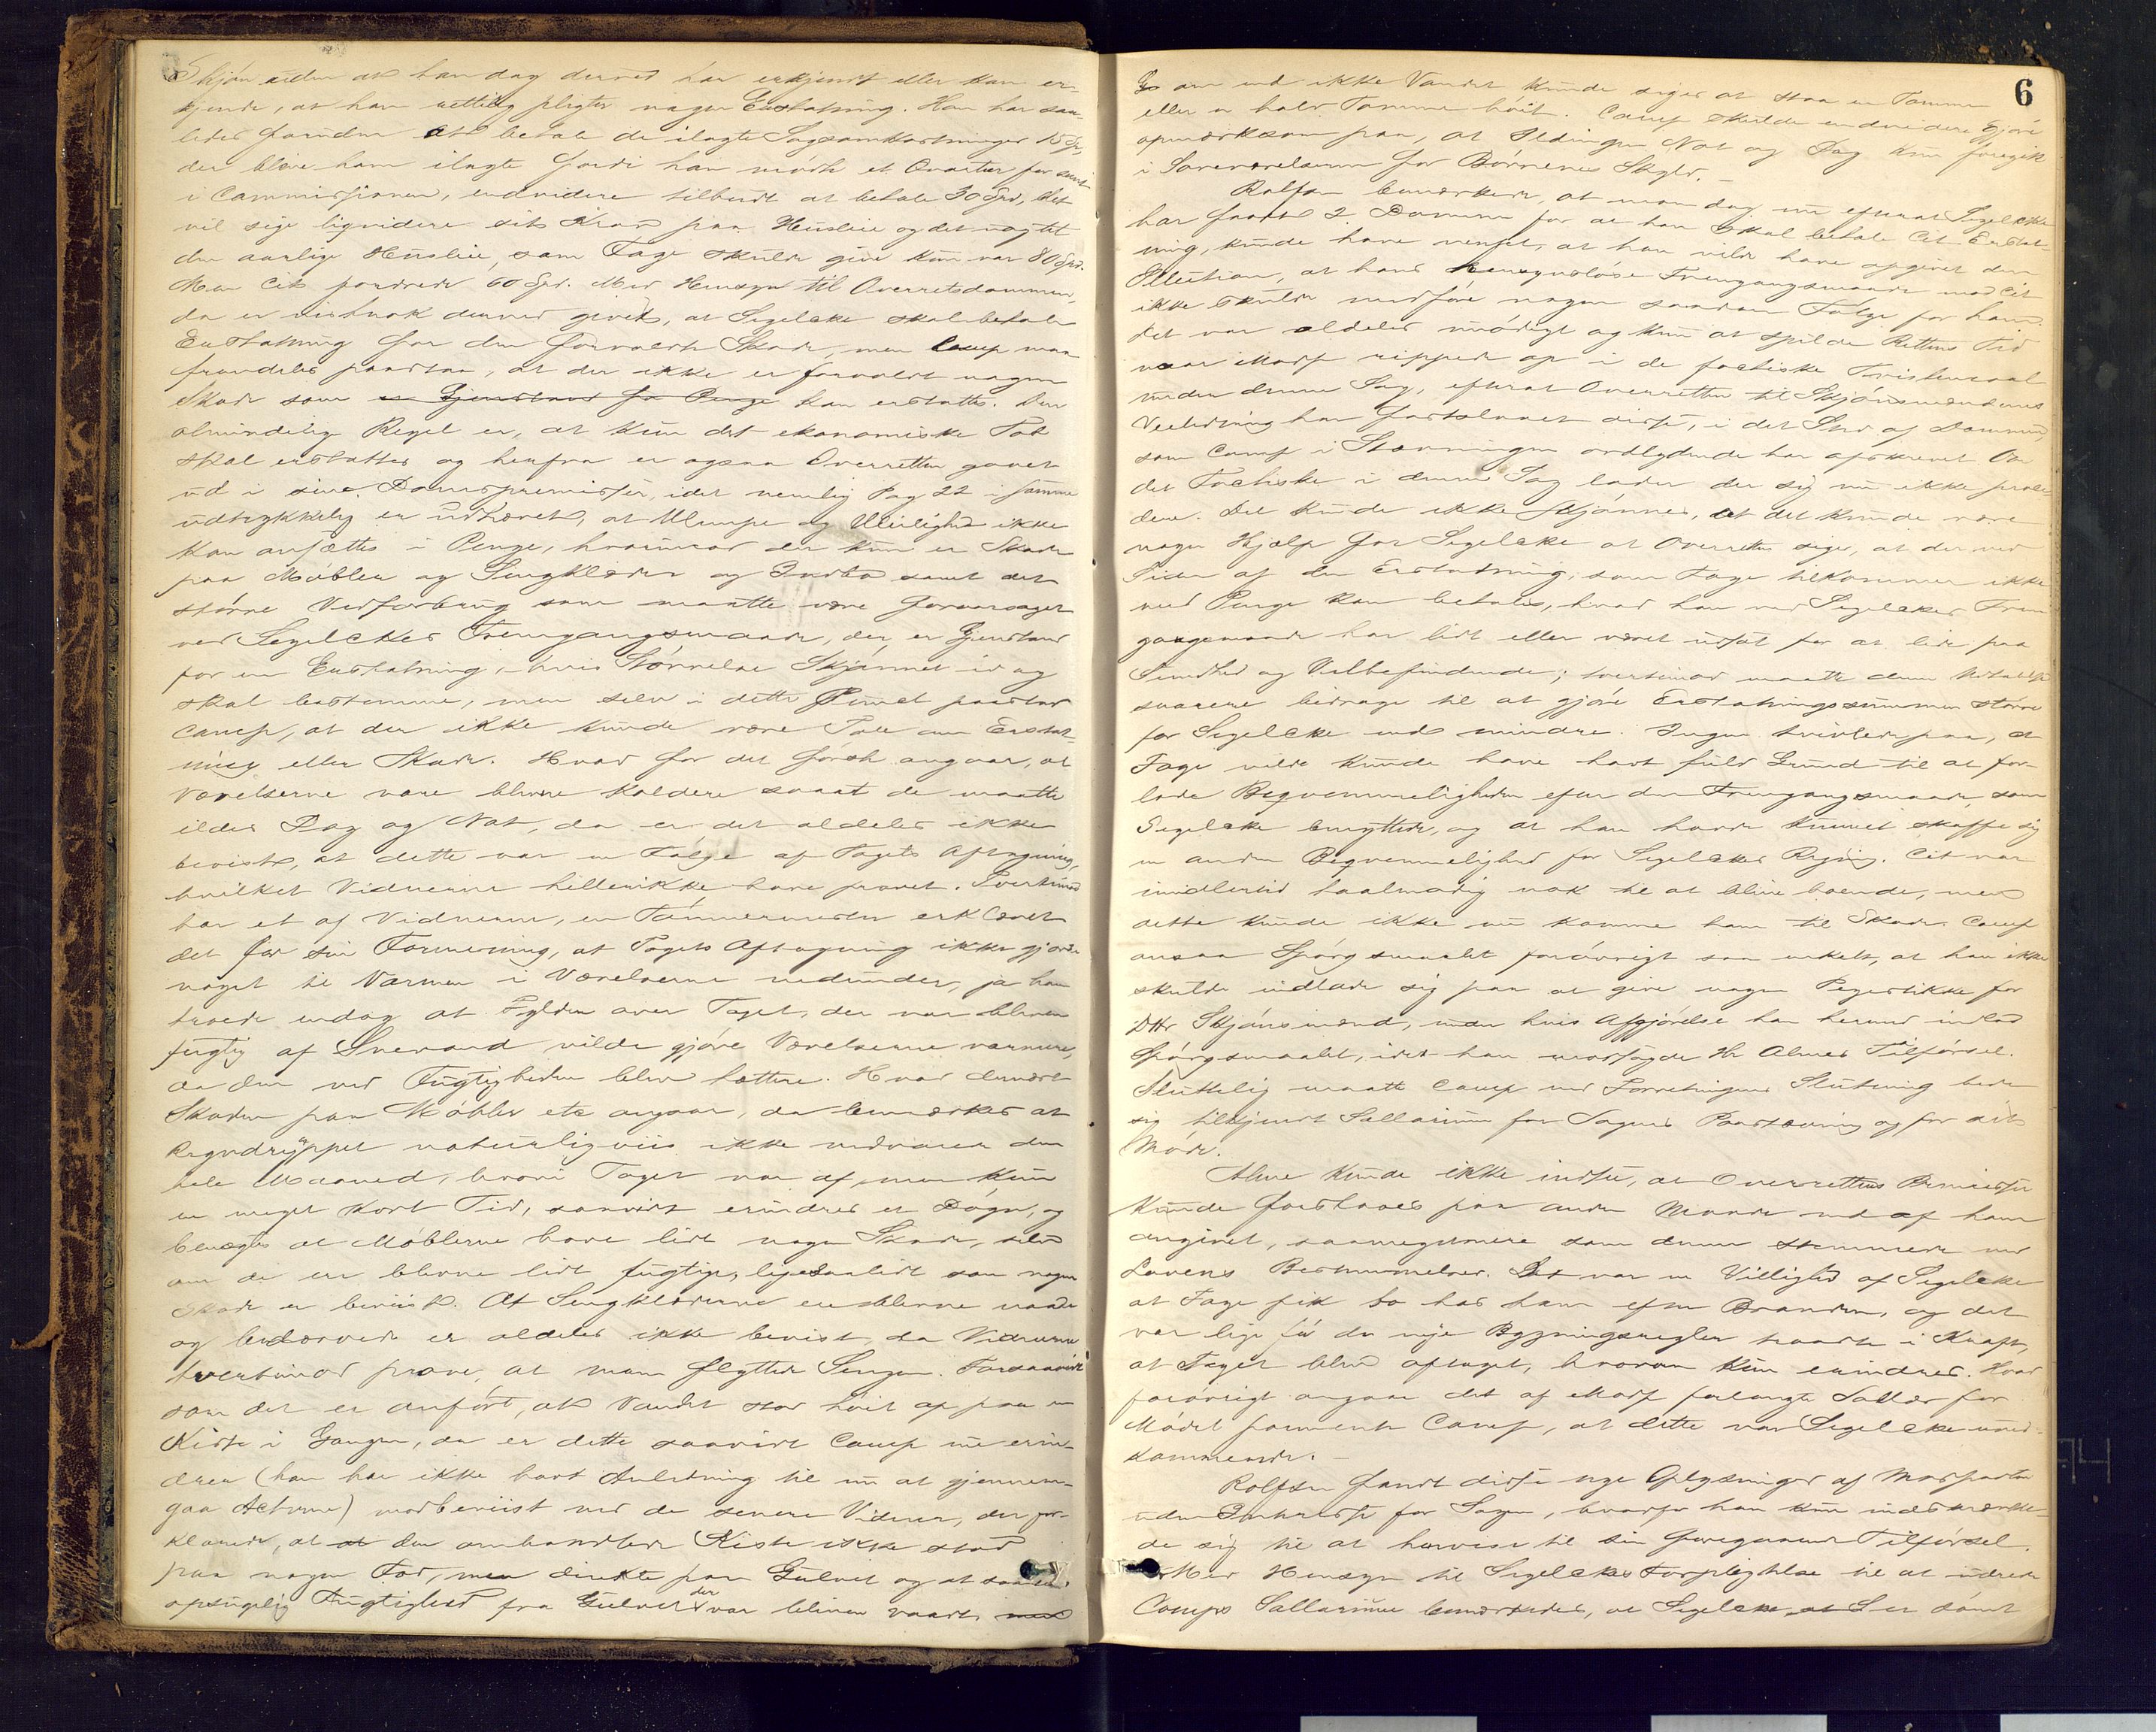 Skjøn uden at han dog derved har erkjendt eller kan er-
kjende, at han rettelig pligter nogen Erstatning. Han har saa-
ledes foruden at betale de ilagte Sagsomkostninger 15 Spd,
der bleve ham ilagte fordi han mødte et Qvarter for seent
i Commissionen, endvidere tilbudt at betale 30 Spd, det
vil sige liqvidere sit Krav paa Husleie og det uagtet
den aarlige Husleie, som Fage skulde give kun var 80 Spd.
Men Cit. fordrede 60 Spd. Med Hensyn til Overretsdommen,
da er vistnok derved givet, at Segelcke skal betale
Erstatning for den forvoldte Skade, men Comp maa
fremdeles paastaa, at der ikke er forvoldt nogen
Skade som er Gjenstand for Penge kan erstattes. Den
almindelig Regel er, at kun det økonomiske Tab
skal erstattes og herfra er ogsaa Overretten gaaet
ud i sine Domspremisser, idet nemlig Pag 22 i samme
udtrykkelig er udhævet, at Ulempe og Uleilighed ikke
kan ansættes i Penge, hvorimod der kun er Skade
paa Møbler og Sengklæder og Indbo samt det
større Vedforbrug som maatte være foraarsaget
ved Segelckes Fremgangsmaade, der er Gjenstand
for en Erstatning, hvis Størrelse Skjønnet
skal bestemme, men selv i dette Punct paastod
Comp, at der ikke kunde være Tale om Erstat-
ning eller Skade. Hvad for det første angaar, at
Værelserne vare blevne koldere saaat de maatte
ildes Dag og Nat, da er det aldeles ikke
bevist, at dette var en Følge af Tagets Aftagning,
hvilket Vidnerne hellerikke have provet. Tvertimod
har et af Vidnerne, en Tømmermester erklæret
det for sin Formening, at Tagets Aftagning ikke gjorde
noget til Varmen i Værelserne nedunder, ja han
troede endog at Fylden over Taget, der var bleven
fugtig af Snevand vilde gjøre Værelserne varmere,
da den ved Fugtigheden blev tættere. Hvad dernæst
Skaden paa Møbler etc angaar, da bemærkes at
Regndryppet naturligviis ikke vedvarede den
hele Maaned, hvori Taget var af, men kun
en meget kort Tid, saavidt erindres et Døgn, og
benægtes at Møblerne have lidt nogen Skade, selv
om de ere blevne lidt fugtige, ligesaalidt som nogen
Skade er beviist. At Sengklæderne ere blevne vaade
og bedærvede er aldeles ikke bevist, da Vidnerne
tvertimod prove, at man flyttede Sengen. Forsaavidt
som det er anført, at Vandet stod høit op paa en
Kiste i Gangen, da er dette saavidt Comp nu erin-
drer (han har ikke havt Anledning til nu at gjennem-
gaa Acterne) modbeviist ved de senere Vidner, der for-
klarede, at at den omhandlede Kiste ikke stod
paa nogen Fod, men direkte paa Gulvet og at saaledes
opsugelig Fugtighed fra Gulvet der var bleven vaadt, med
6
Is om end ikke Vandet kunde siges at staa en Tomme
eller en halv Tomme høit. Comp skulde endvidere gjøre
opmærksom paa, at Ildingen Nat og Dag kun foregik
i Soveværelserne for Børnenes Skyld. –
Rolfsen bemærkede, at man dog nu efterat Segelcke
har faaet 2 Domme for at han skal betale Cit. Erstat-
ning, kunde have ventet, at han vilde have opgivet den
Illution, at hans hensynsløse Fremgangsmaade mod Cit
ikke skulde medføre nogen saadan Følge for ham.
Det var aldeles unødigt og kun at spilde Rettens Tid
naar Modp ripper op i de factiske Tvistemaal
under denne Sag, efterat Overretten til Skjønsmændenes
Veiledning har fastslaaet disse, i det Sted af Dommen,
som Comp i Stævningen ordlydende har afskrevet. Om
det Factiske i denne Sag lader der sig nu ikke proce-
dere. Det kunde ikke skjønnes, at det kunde være
nogen Hjælp for Segelcke at Overretten siger, at der ved
Siden af den Erstatning, som Fage tilkommer ikke
med Penge kan betales, hvad han ved Segelckes Frem
gangsmaade har lidt eller været udsat for at lide paa
Sundhed og Velbefindende; tvertimod maatte denne Udtalelse
snarere bidrage til at gjøre Erstatningssummen større
for Segelcke end mindre. Ingen tvivlede paa, at
Fage vilde kunde have havt fuld Grund til at for-
lade Beqvemmeligheden efter den Fremgangsmaade, som
Segelcke benyttede, og at han havde kunnet skaffe sig
en anden Beqvemmelighed for Segelckes Regning. Cit var
imidlertid taalmodig nok til at blive boende, men
dette kunde ikke nu komme ham til Skade. Comp
ansaa Spørgsmaalet forøvrigt saa enkelt, at han ikke
skulde indlade sig paa at give nogen Pegestikke for
DHr Skjønsmænd, under hvis Afgjørelse han herved indlod
Spørgsmaalet, idet han modsagde Hr Almes Tilførsel.
Sluttelig maatte Comp ved Forretningens Slutning bede
sig tilkjendt Sallarium for Sagens Paastævning og for sit
Møde.
Alme kunde ikke indsee, at Overrettens Premisser
kunde forstaaes paa anden Maade end af ham
angivet, saameget mere som denne stemmede med
Lovens Bestemmelser. Det var en Villighed af Segelcke
at Fage fik bo hos ham efter Branden, og det
var lige før de nye Bygningsregler traadte i Kraft,
at Taget blev aftaget, hvorom kun erindres. Hvad
forøvrigt angaar det af Modp forlangte Sallær for
Mødet formente Comp, at dette var Segelcke uved-
kommende. –
Rolfsen fandt disse nye Oplysninger af Modparten
uden Interesse for Sagen, hvorfor han kun indskrænke-
de sig til at henvise til sin foregaaende Tilførsel.
Med Hensyn til Segelckes Forpligtelse til at udrede
Comps Sallarium bemærkedes, at Segelcke at S er dømt